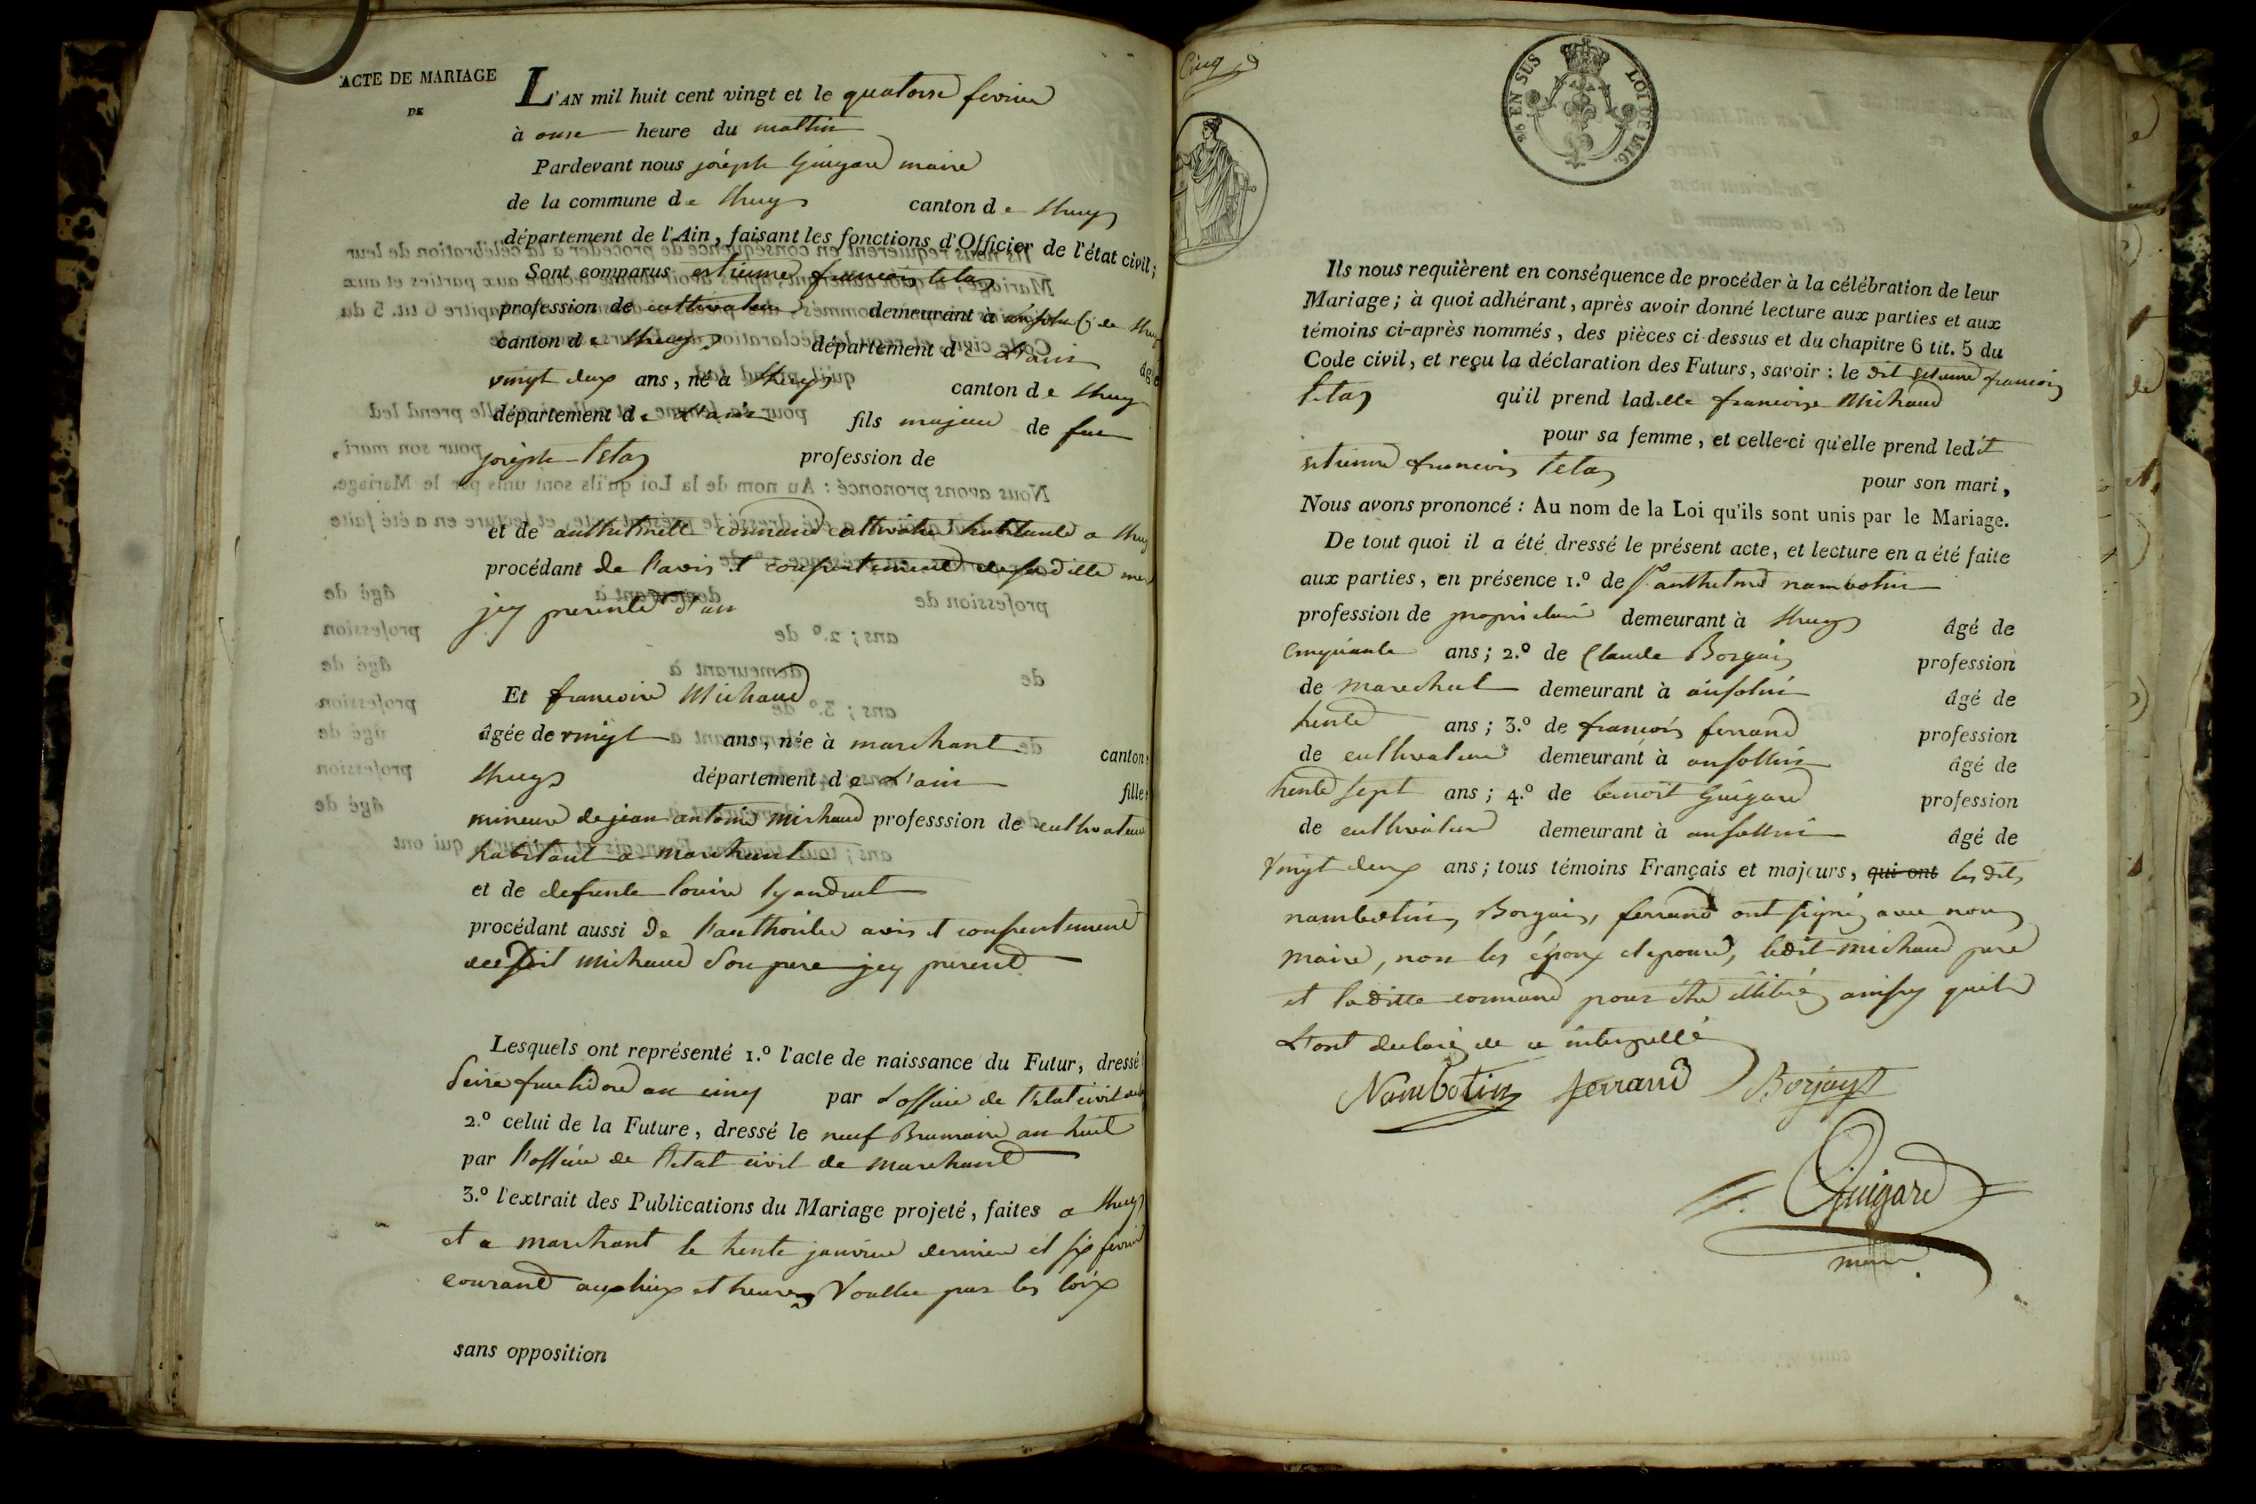 ACTE DE MARIAGE
DE
L'AN mil huit cent vingt et le quatorse fevrier
à onse heure du mattin
Pardevant nous joséph Guigard maire
de la commune de thuys canton de thuys
département de l'Ain, faisant les fonctions d'Officier de l'état civil;
Sont comparus estienne françois tetaz
profession de cultivateur demeurant à
canton de thuys département de L'ain âgé
vingt deux ans, né à thuys canton de thuys
département de L'ain fils majeur de feu
joséph tetaz profession de
et de anthelmette connand cultivatrice habitante a thuys
procédant de l'avis et consentement de sa ditte mere
jcy presente d'un
Et francoise Michaud
âgée de vingt ans, née à marchant canton
thuys département de L'ain fille
mineure de jean antoine michaud professsion de cultivateur
habitant a marchant
et de defunte louise
procédant aussi de l'authorité avis et consentement
dudit michaud Son pere jcy présent
Lesquels ont représenté 1.º l'acte de naissance du Futur, dressé
Seise fructidor an cinq par L'officier de l'etat civil
2.º celui de la Future, dressé le neuf Brumaire an huit
par l'officier de l'etat civil de marchant
3.º l'extrait des Publications du Mariage projeté, faites a thuys
et a marchant le trente janvier dernier et six fevrier
courant aux lieux et heures Voullu par les loix
sans opposition
Cinq
95 EN SUS LOI DE 1816.
Ils nous requièrent en conséquence de procéder à la célébration de leur
Mariage; à quoi adhérant, après avoir donné lecture aux parties et aux
témoins ci-après nommés, des pièces ci-dessus et du chapitre 6 tit. 5 du
Code civil, et reçu la déclaration des Futurs, savoir: le dit estienne francois
tetaz qu'il prend ladelle francoise Michaud
pour sa femme, et celle-ci qu'elle prend ledit
estienne francois tetaz pour son mari,
Nous avons prononcé: Au nom de la Loi qu'ils sont unis par le Mariage.
De tout quoi il a été dressé le présent acte, et lecture en a été faite
aux parties, en présence 1.º de Sr anthelme nambotin
profession de proprietaire demeurant à thuys âgé de
cinquante ans; 2.º de Claude Borgais profession
de marechal demeurant à ansolin âgé de
trente ans; 3.º de françois ferrand profession
de cultivateur demeurant à ansollin âgé de
trente sept ans; 4.º de benoit Guigard profession
de cultivateur demeurant à ansollin âgé de
vingt deux ans; tous témoins Français et majeurs, qui ont les dits
nambotin, Borgais, ferrand ont signé avec nous
maire, non les époux et epouse, ledit michaud pere
et laditte connand pour être illitéré ainsy quils
L'ont declaré de ce interpellé
Nambotin ferrand Borjays
Guigard
maire